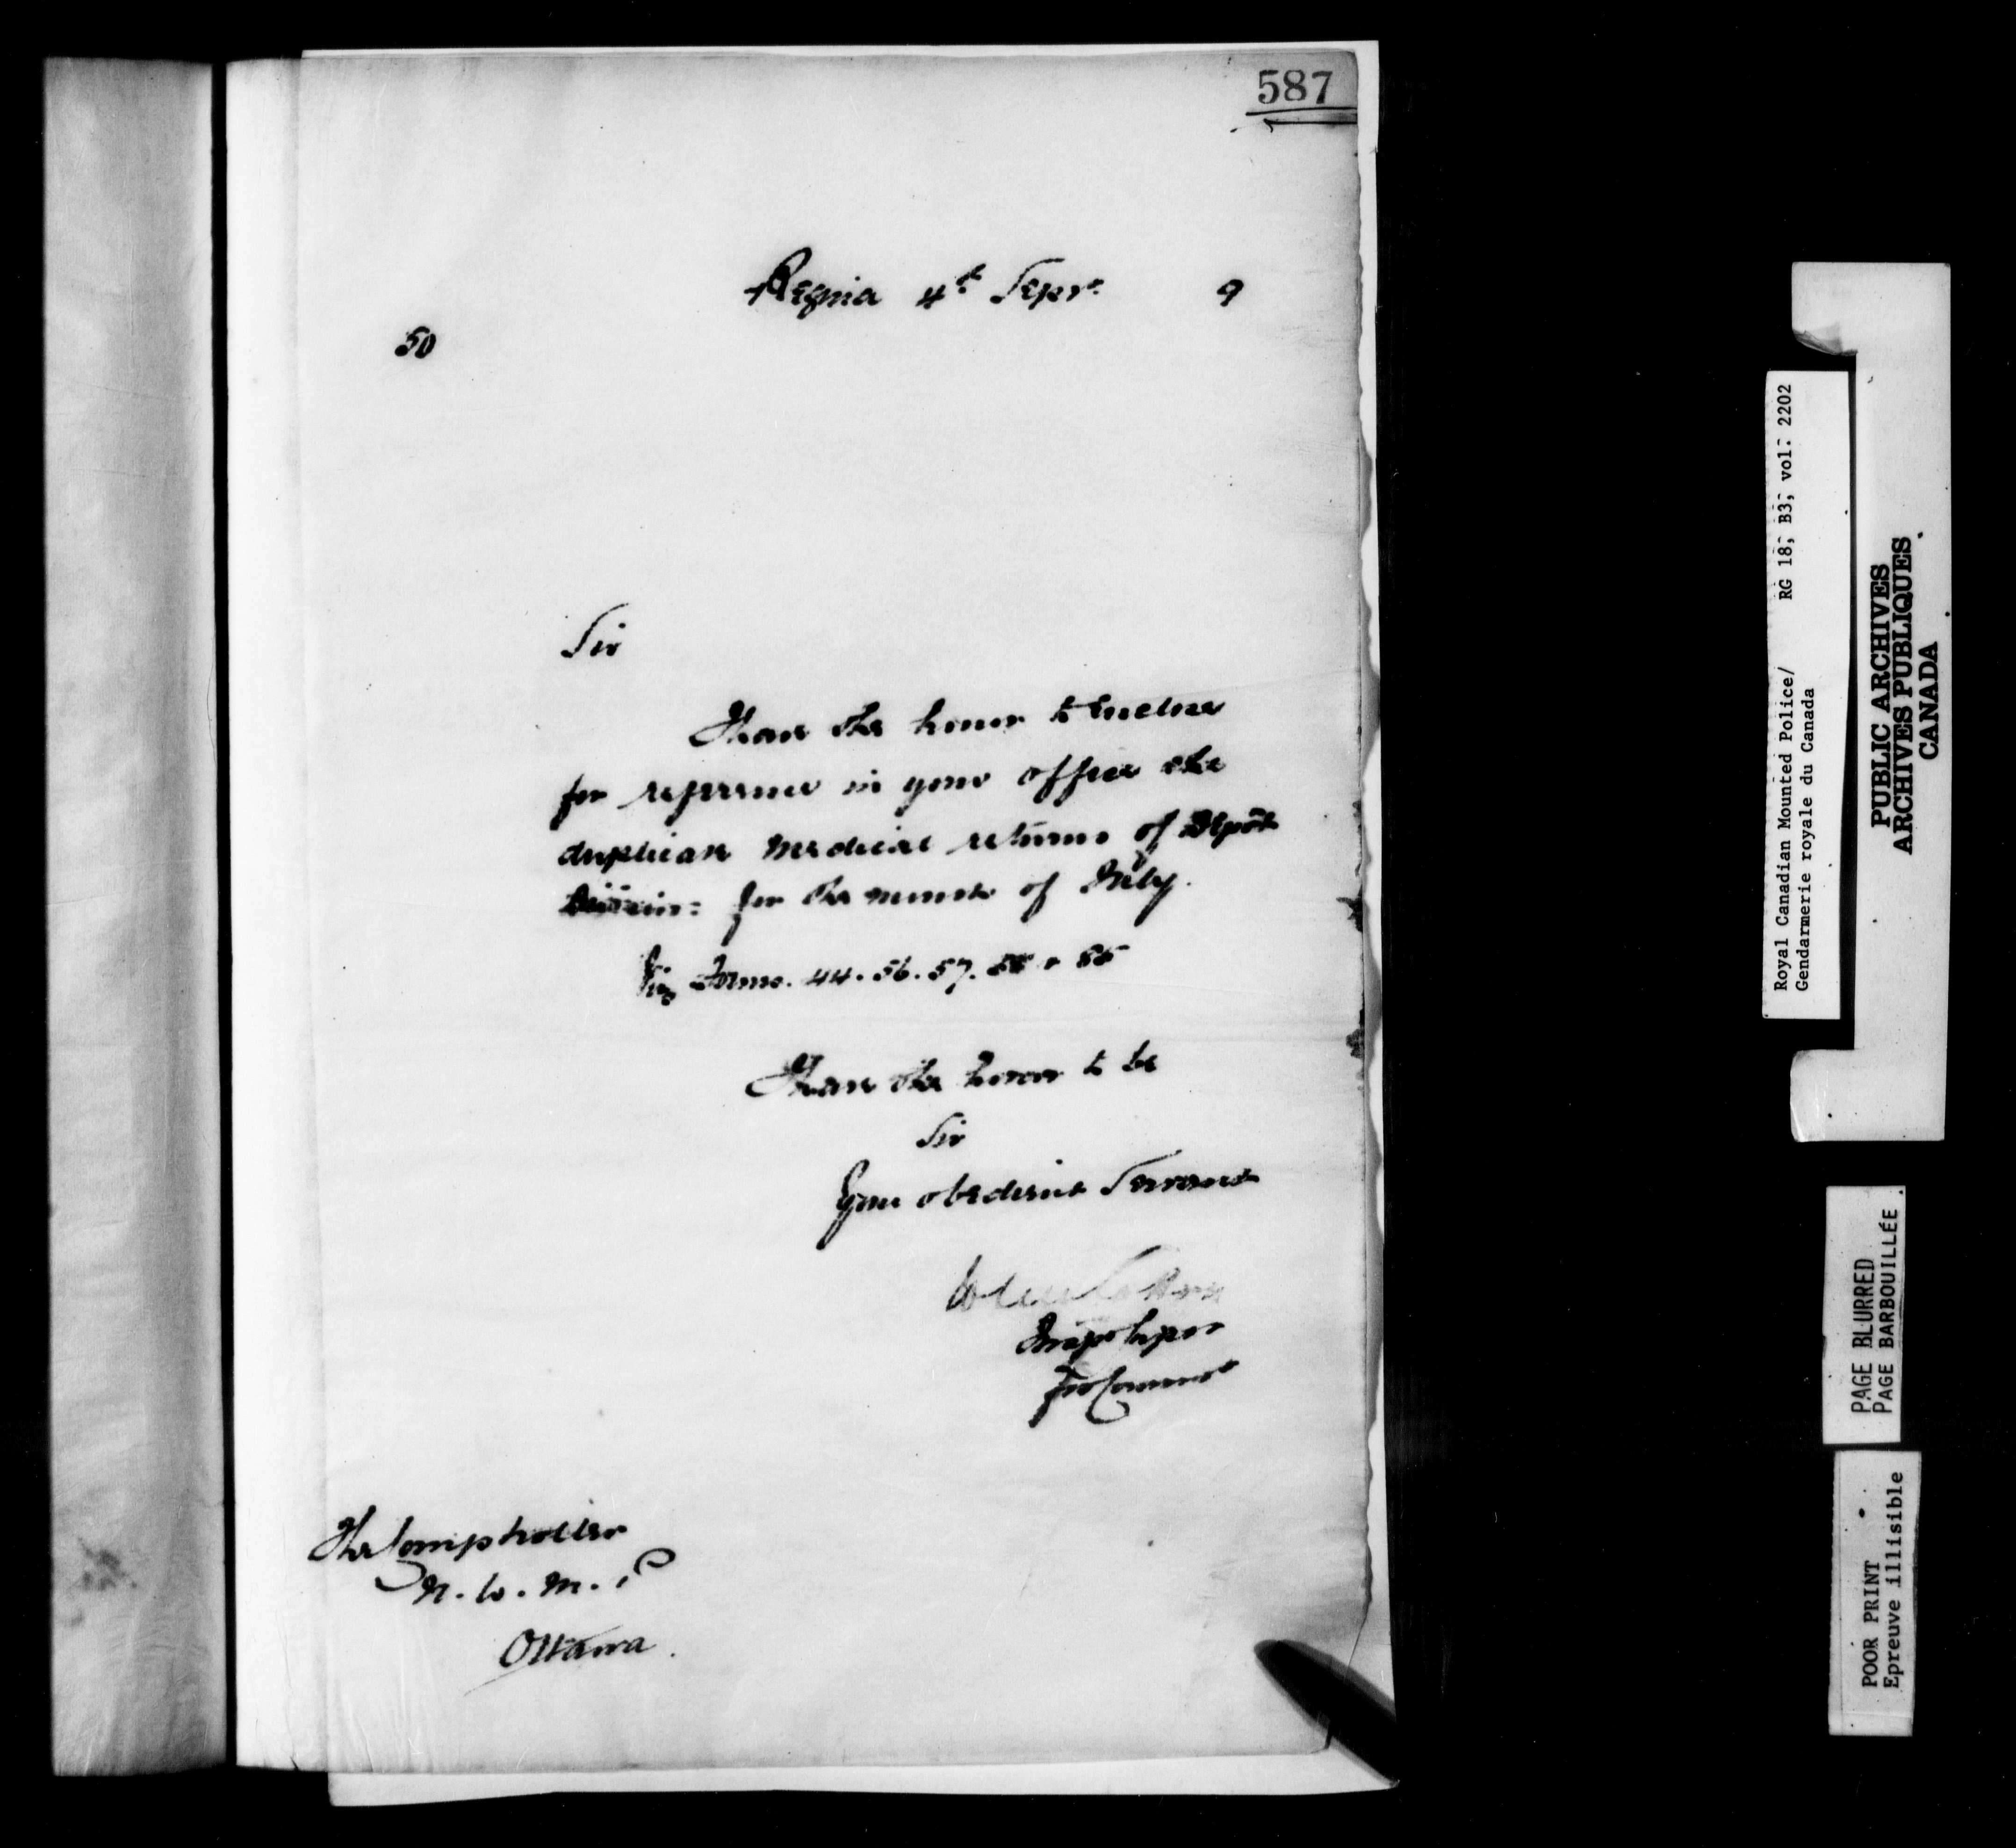 587
Regina 4th Sepr. 9
50
Sir
I have the honor to enclose
for reference in your office the
duplicate medical returns of Depôt
Division for the month of July.
Viz Forms. 44. 56. 57.
I have the honor to be
Sir
Your obedient Servant
for Commr
The Comptroller
N. W. M. P
Ottawa.
Royal Canadian Mounted Police/ RG 18; B3; vol: 2202
Gendarmerie royale du Canada
PUBLIC ARCHIVES
ARCHIVES PUBLIQUES
CANADA
PAGE BLURRED
PAGE BARBOUILLÉE
POOR PRINT
Epreuve illisible